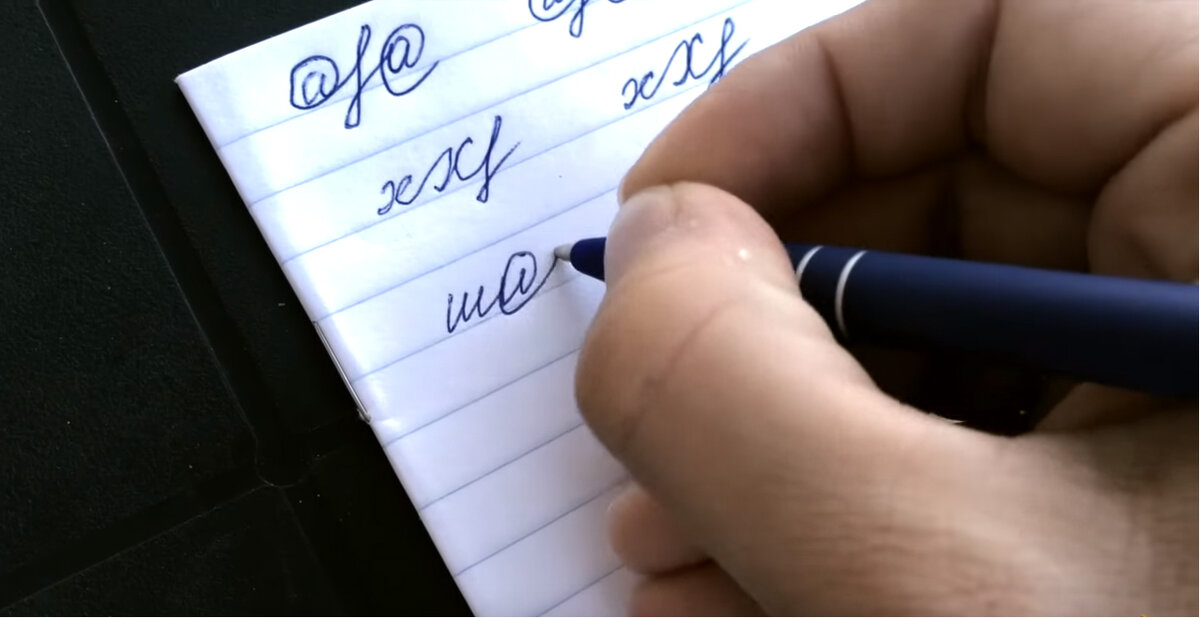 @f@
xXf xXf
m@